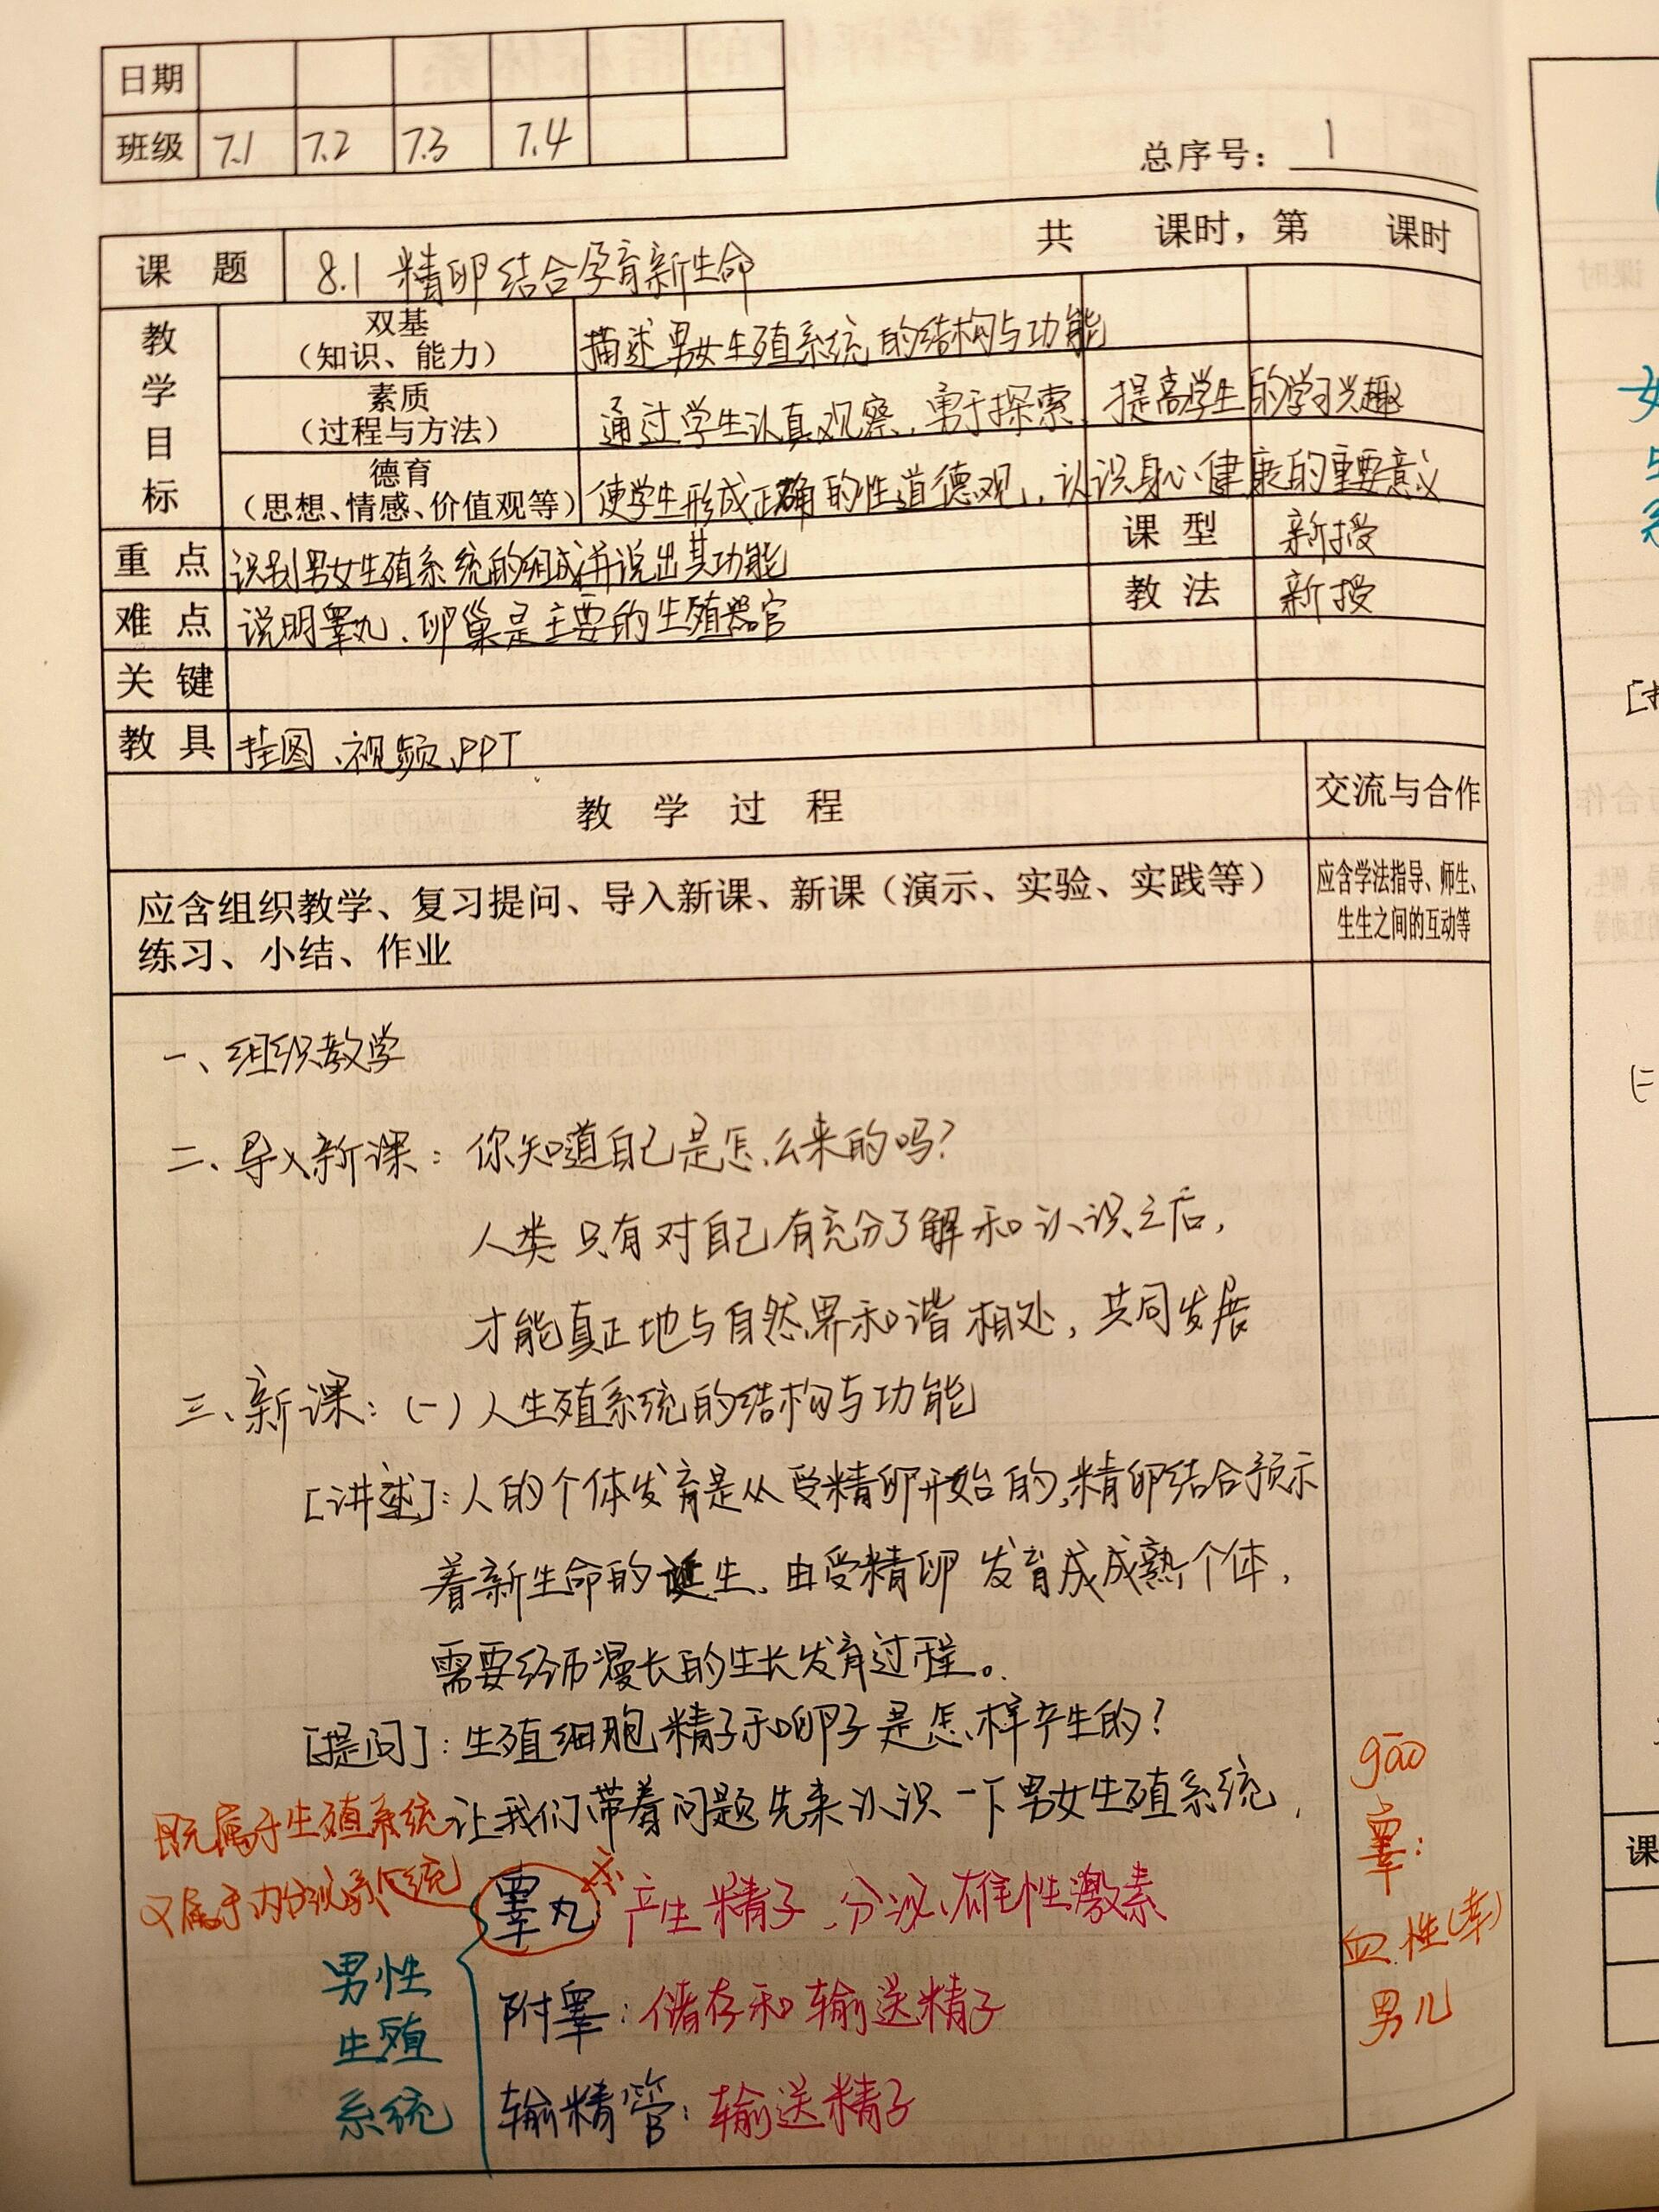 日期
班级 7.1 7.2 7.3 7.4
总序号: 1
课 题 8.1 精卵结合孕育新生命 共 课时, 第 课时
教学目标
双基
(知识、能力) 描述男女生殖系统的结构与功能
素质
(过程与方法) 通过学生认真观察、勇于探索、提高学生的学习兴趣
德育
(思想、情感、价值观等) 使学生形成正确的性道德观, 认识身心健康的重要意义
重 点 识别男女生殖系统的组成并说出其功能 课 型 新授
难 点 说明睾丸、卵巢是主要的生殖器官 教 法 新授
关 键
教 具 挂图、视频、PPT
教 学 过 程 交流与合作
应含组织教学、复习提问、导入新课、新课(演示、实验、实践等)
练习、小结、作业
应含学法指导、师生、
生生之间的互动等
一、组织教学
二、导入新课: 你知道自己是怎么来的吗?
人类只有对自己有充分了解和认识之后,
才能真正地与自然界和谐相处, 共同发展
三、新课: (一) 人生殖系统的结构与功能
[讲述]: 人的个体发育是从受精卵开始的, 精卵结合预示
着新生命的诞生、由受精卵发育成成熟个体,
需要经历漫长的生长发育过程。
[提问]: 生殖细胞精子和卵子是怎样产生的?
让我们带着问题先来认识一下男女生殖系统,
既属于生殖系统
又属于内分泌系统
男性
生殖
系统
睾丸 产生精子、分泌雄性激素
附睾: 储存和输送精子
输精管: 输送精子
gāo
睾:
血性(幸)
男儿
课